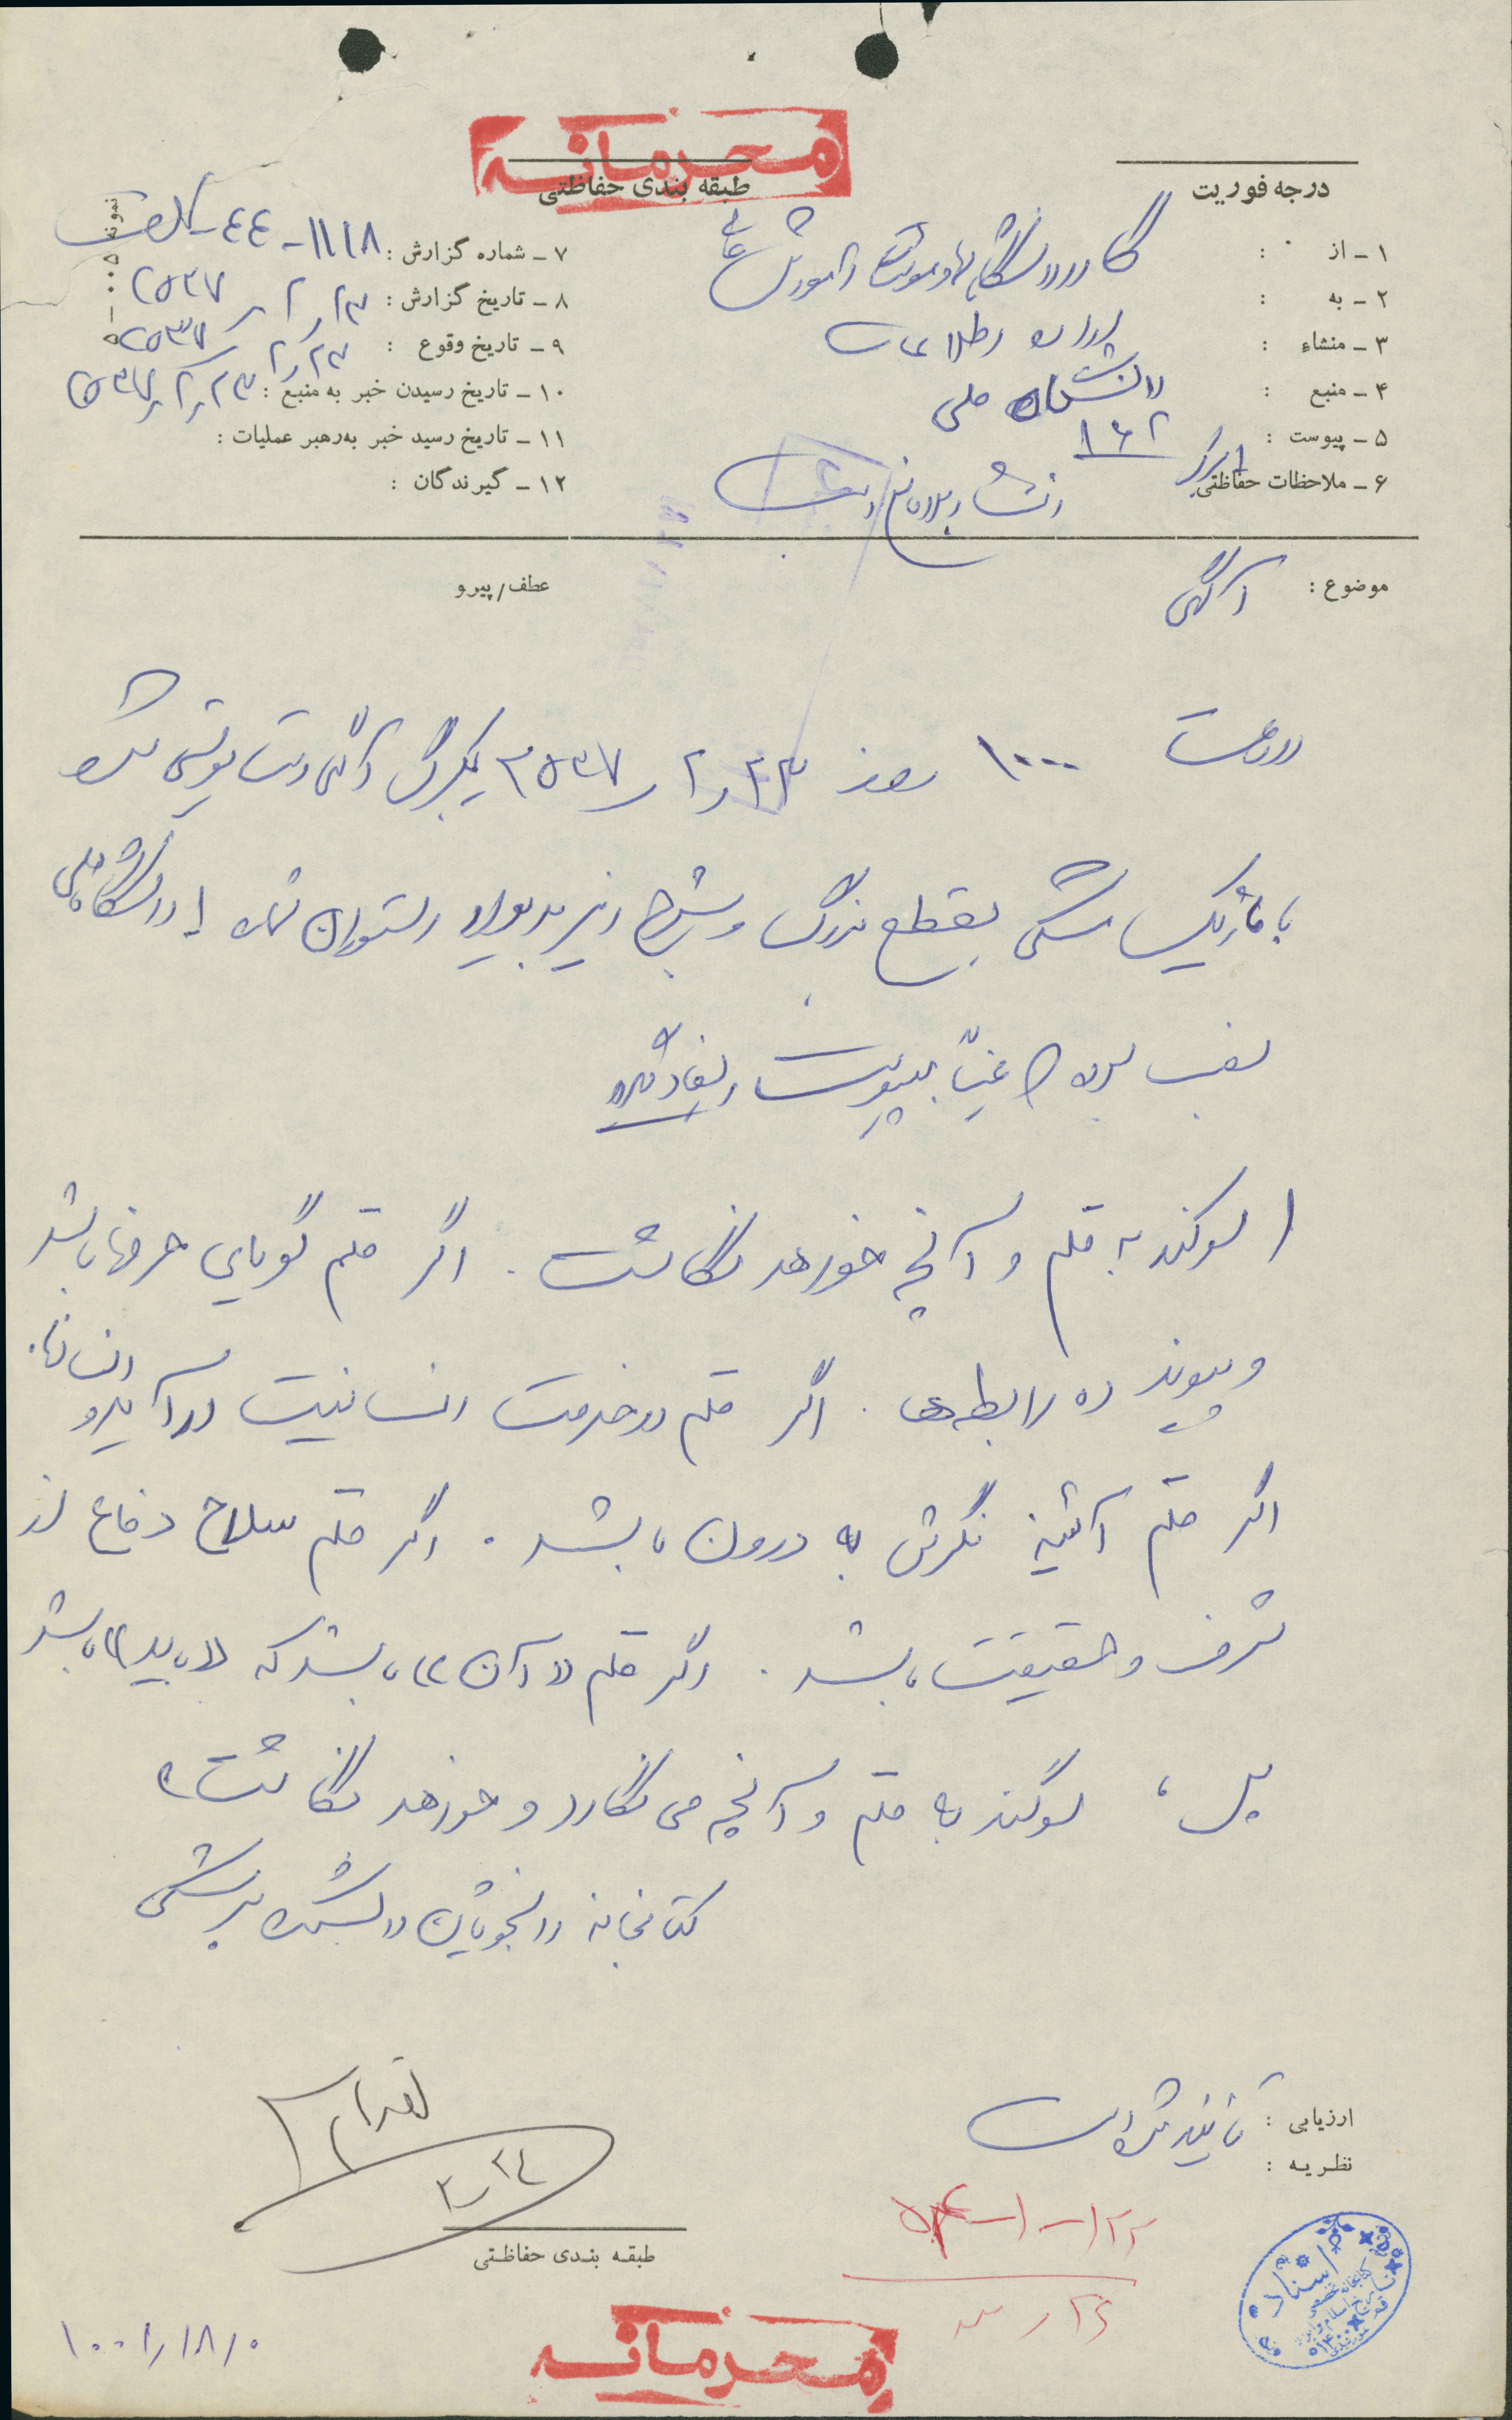 محرمانه
درجه فوریت
طبقه بندی حفاظتی
۱ـ از : گارد دانشگاهها و موسسات آموزش عالی
۲ـ به :
۳ـ منشاء : اداره اطلاعات
۴ـ منبع : دانشگاه ملی
۵ـ پیوست : ۱۶۲
۶ـ ملاحظات حفاظتی
۷ـ شماره گزارش : ۱۱۱۸-۴۴-
۸ـ تاریخ گزارش : ۲۳ر۲ر۲۵۳۷
۹ـ تاریخ وقوع : ۲۳ر۲ر۲۵۳۷
۱۰ـ تاریخ رسیدن خبر به منبع : ۲۳ر۲ر۲۵۳۷
۱۱ـ تاریخ رسید خبر به‌رهبر عملیات :
۱۲ـ گیرندگان :
موضوع : آگهی
عطف/پیرو
در ساعت ۱۰۰۰ روز ۲۳ر۲ر۲۵۳۷ یکبرگ آگهی دست نویس شده
با ماژیک مشکی بقطع بزرگ و بشرح زیر بدیوار رستوران شماره ۱ دانشگاه ملی
نصب شده که عیناً بپیوست ایفاد میگردد
(سوگند به قلم و آنچه خواهد نگاشت. اگر قلم گویای حرفها باشد
و پیوند ده رابطه‌ها. اگر قلم در خدمت انسانیت درآید و انسانها.
اگر قلم آئینه نگرش به درون باشد. اگر قلم سلاح دفاع از
شرف و حقیقت باشد. اگر قلم «آن» باشد که «باید» باشد
پس، سوگند به قلم و آنچه می نگارد و خواهد نگاشت»
کتابخانه دانشجویان دانشکده پزشکی
ارزیابی : تائید شده است
نظریه :
اقدام
۲۴ر۲
۲۲-۱-
۲۶ر
طبقه بندی حفاظتی
محرمانه
اسناد
۱۰۰۲/۱۸/۰